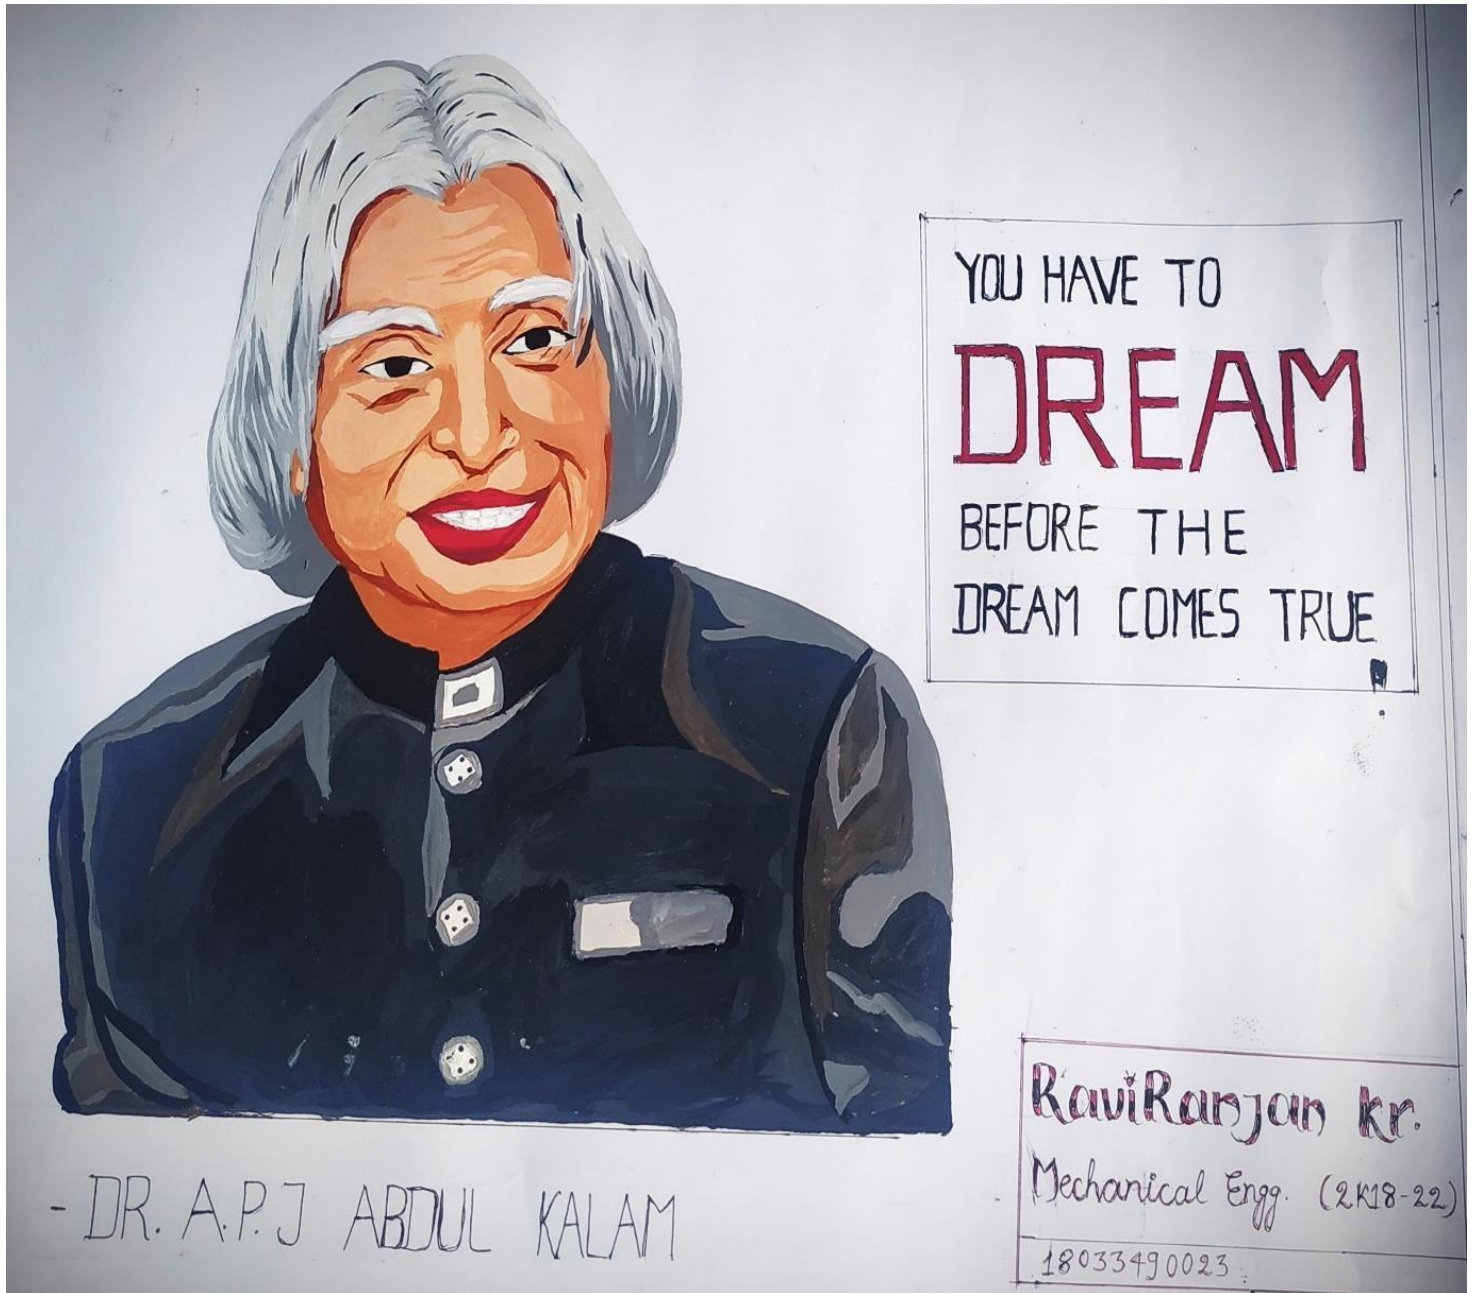 YOU HAVE TO
DREAM
BEFORE THE
DREAM COMES TRUE
!
- DR. A.P.J ABDUL KALAM
RaviRanjan kr.
Mechanical Engg. (2K18-22)
18033490023